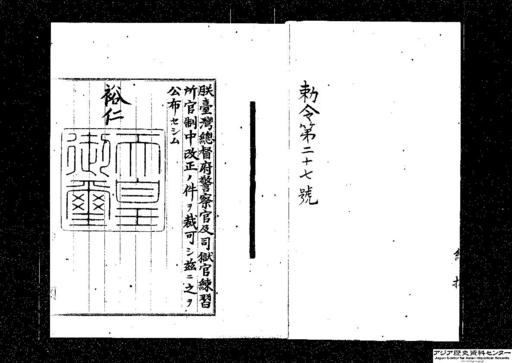 勅令第二十七號
朕臺灣總督府警察官及司獄官練習
所官制中改正ノ件ヲ裁可シ茲ニ之ヲ
公布セシム
裕仁
天皇
御璽
アジア歴史資料センター
Japan Center for Asian Historical Records